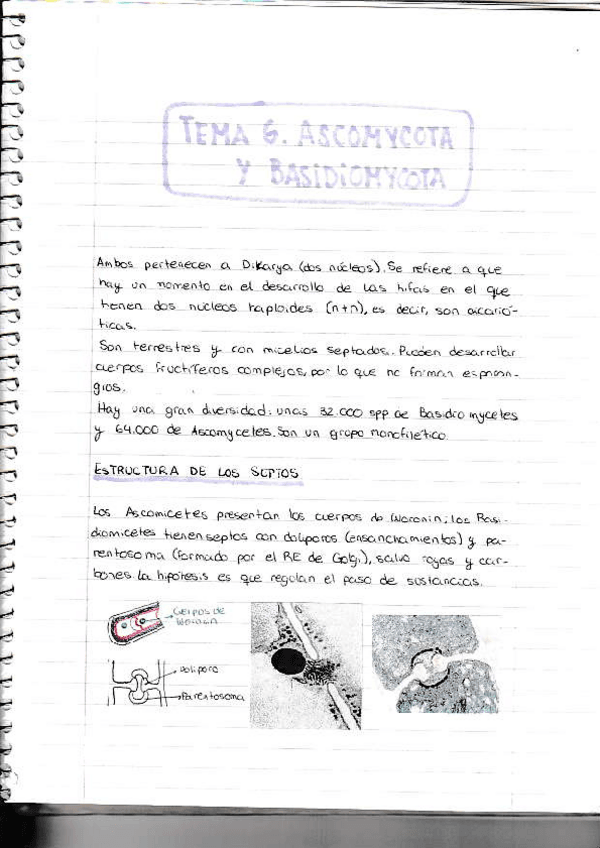 TEMA 6. ASCOMYCOTA
Y BASIDIOMYCOTA
Ambos pertenecen a Dikarya (dos núcleos). Se refiere a que
hay un momento en el desarrollo de las hifas en el que
tienen dos núcleos haploides (n+n), es decir, son dicarió-
ticas.
Son terrestres y con micelios septados. Pueden desarrollar
cuerpos fructíferos complejos, por lo que no forman esporan-
gios.
Hay una gran diversidad: unas 32.000 spp de Basidiomycetes
y 64.000 de Ascomycetes. Son un grupo monofilético.
ESTRUCTURA DE LOS SEPTOS
Los Ascomicetes presentan los cuerpos de Woronin; los Basi-
diomicetes tienen septos con doliporos (ensanchamientos) y pa-
rentosoma (formado por el RE de Golgi), salvo royas y car-
bones. La hipótesis es que regulan el paso de sustancias.
CUERPOS DE
Doliporo
Parentosoma